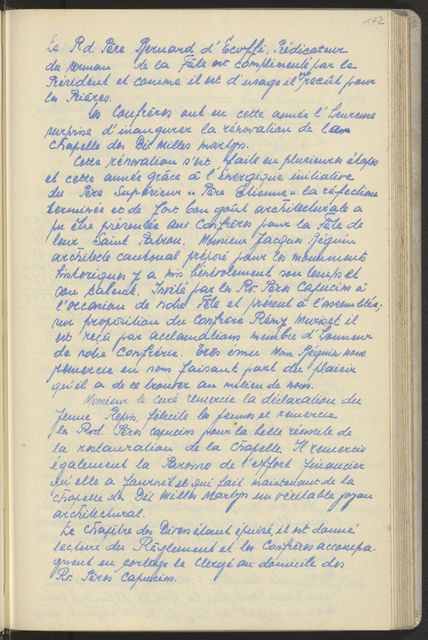 172
Le Rd. Père Bernard d'Ecoffi, Prédicateur
du sermon de la Fête est complimenté par le
Président et comme il est d'usage il est reçu pour
les Prières.
Les Confrères ont eu cette année l'heureuse
surprise d'inaugurer la rénovation de la
Chapelle des Dix Milles martyrs.
Cette rénovation s'est faite en plusieures étapes
et cette année grâce à l'énergique initiative
du Père Supérieur "Père Etienne" la réfection
terminée et de fort bon goût architecturale a
pu être présentée aux Confrères pour la Fête de
leur Saint Patron. Monsieur Jacques Béguin
architecte cantonal préposé pour les monuments
historiques y a mis bénévolement son temps et
son talent. Invité par les Rv. Pères Capucins à
l'occasion de notre Fête et présent à l'assemblée,
sur proposition du Confrère Rémy Muriset il
est reçu par acclamations membre d'honneur
de notre Confrérie. Très ému Mons. Béguin nous
remercie en nous faisant part du plaisir
qu'il a de se trouver au milieu de nous.
Monsieur le curé remercie la déclaration du
Jeune, félicite les jeunes et remercie
les Rvd. Pères Capucins pour la belle réussite de
la restauration de la Chapelle. Il remercie
également la Paroisse de l'effort financier
qu'elle a fournit et qui fait maintenant de la
Chapelle des Dix Milles Martyrs un véritable joyau
architectural.
Le Chapitre des Divers étant épuisé, il est donné
lecture du Règlement et les Confrères accompa-
gnent en cortège le Clergé au domicile des
Rv. Pères Capucins.